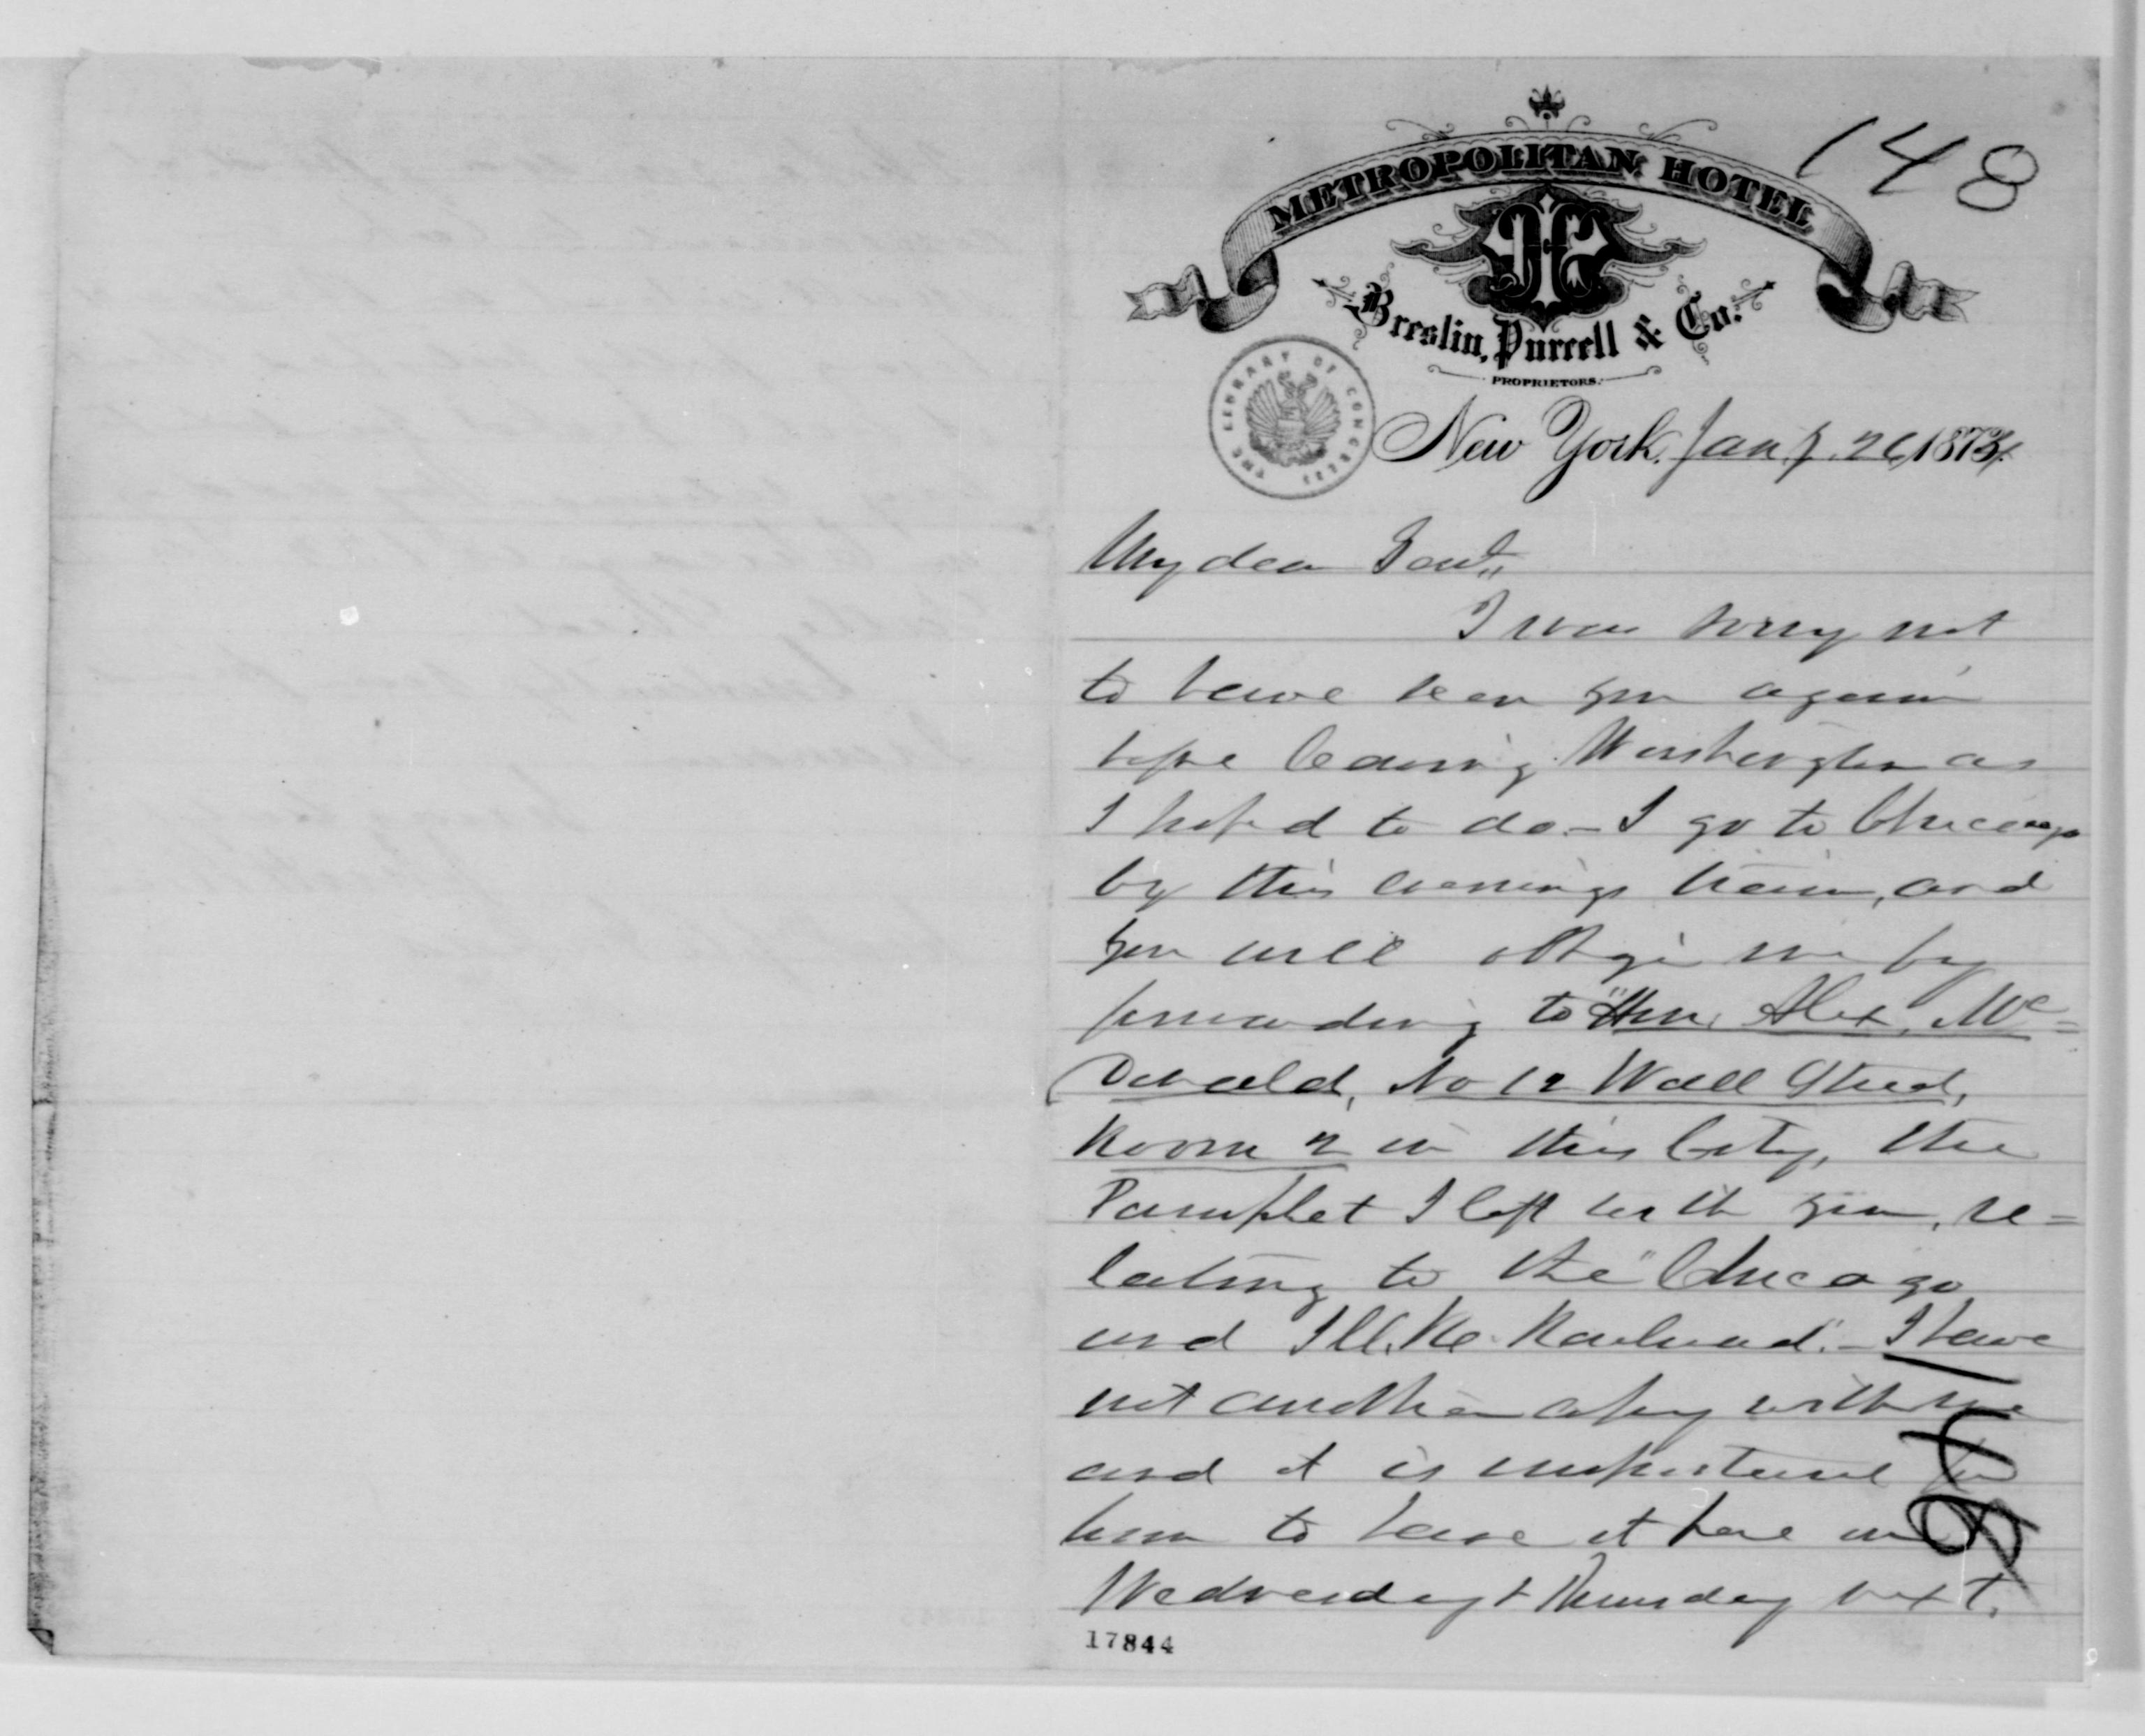 148
METROPOLITAN HOTEL
H
Breslin, Purcell & Co.
PROPRIETORS.
THE LIBRARY OF CONGRESS
New York, Jany. 26, 1874.
My dear Genl,,
I was sorry not
to have seen you again
before leaving Washington as
I hoped to do - I go to Chicago
by this evenings train, and
you will oblige me by
forwarding to "Hon. Alex. Mc=
Donald, No 12 Wall Street,
Room 2 in this City, the
Pamphlet I left with you, re=
lating to the "Chicago
and Ill. Railroad". - I have
not another copy with me
and it is important for
him to have it here on
Wednesday & Thursday next.
17844